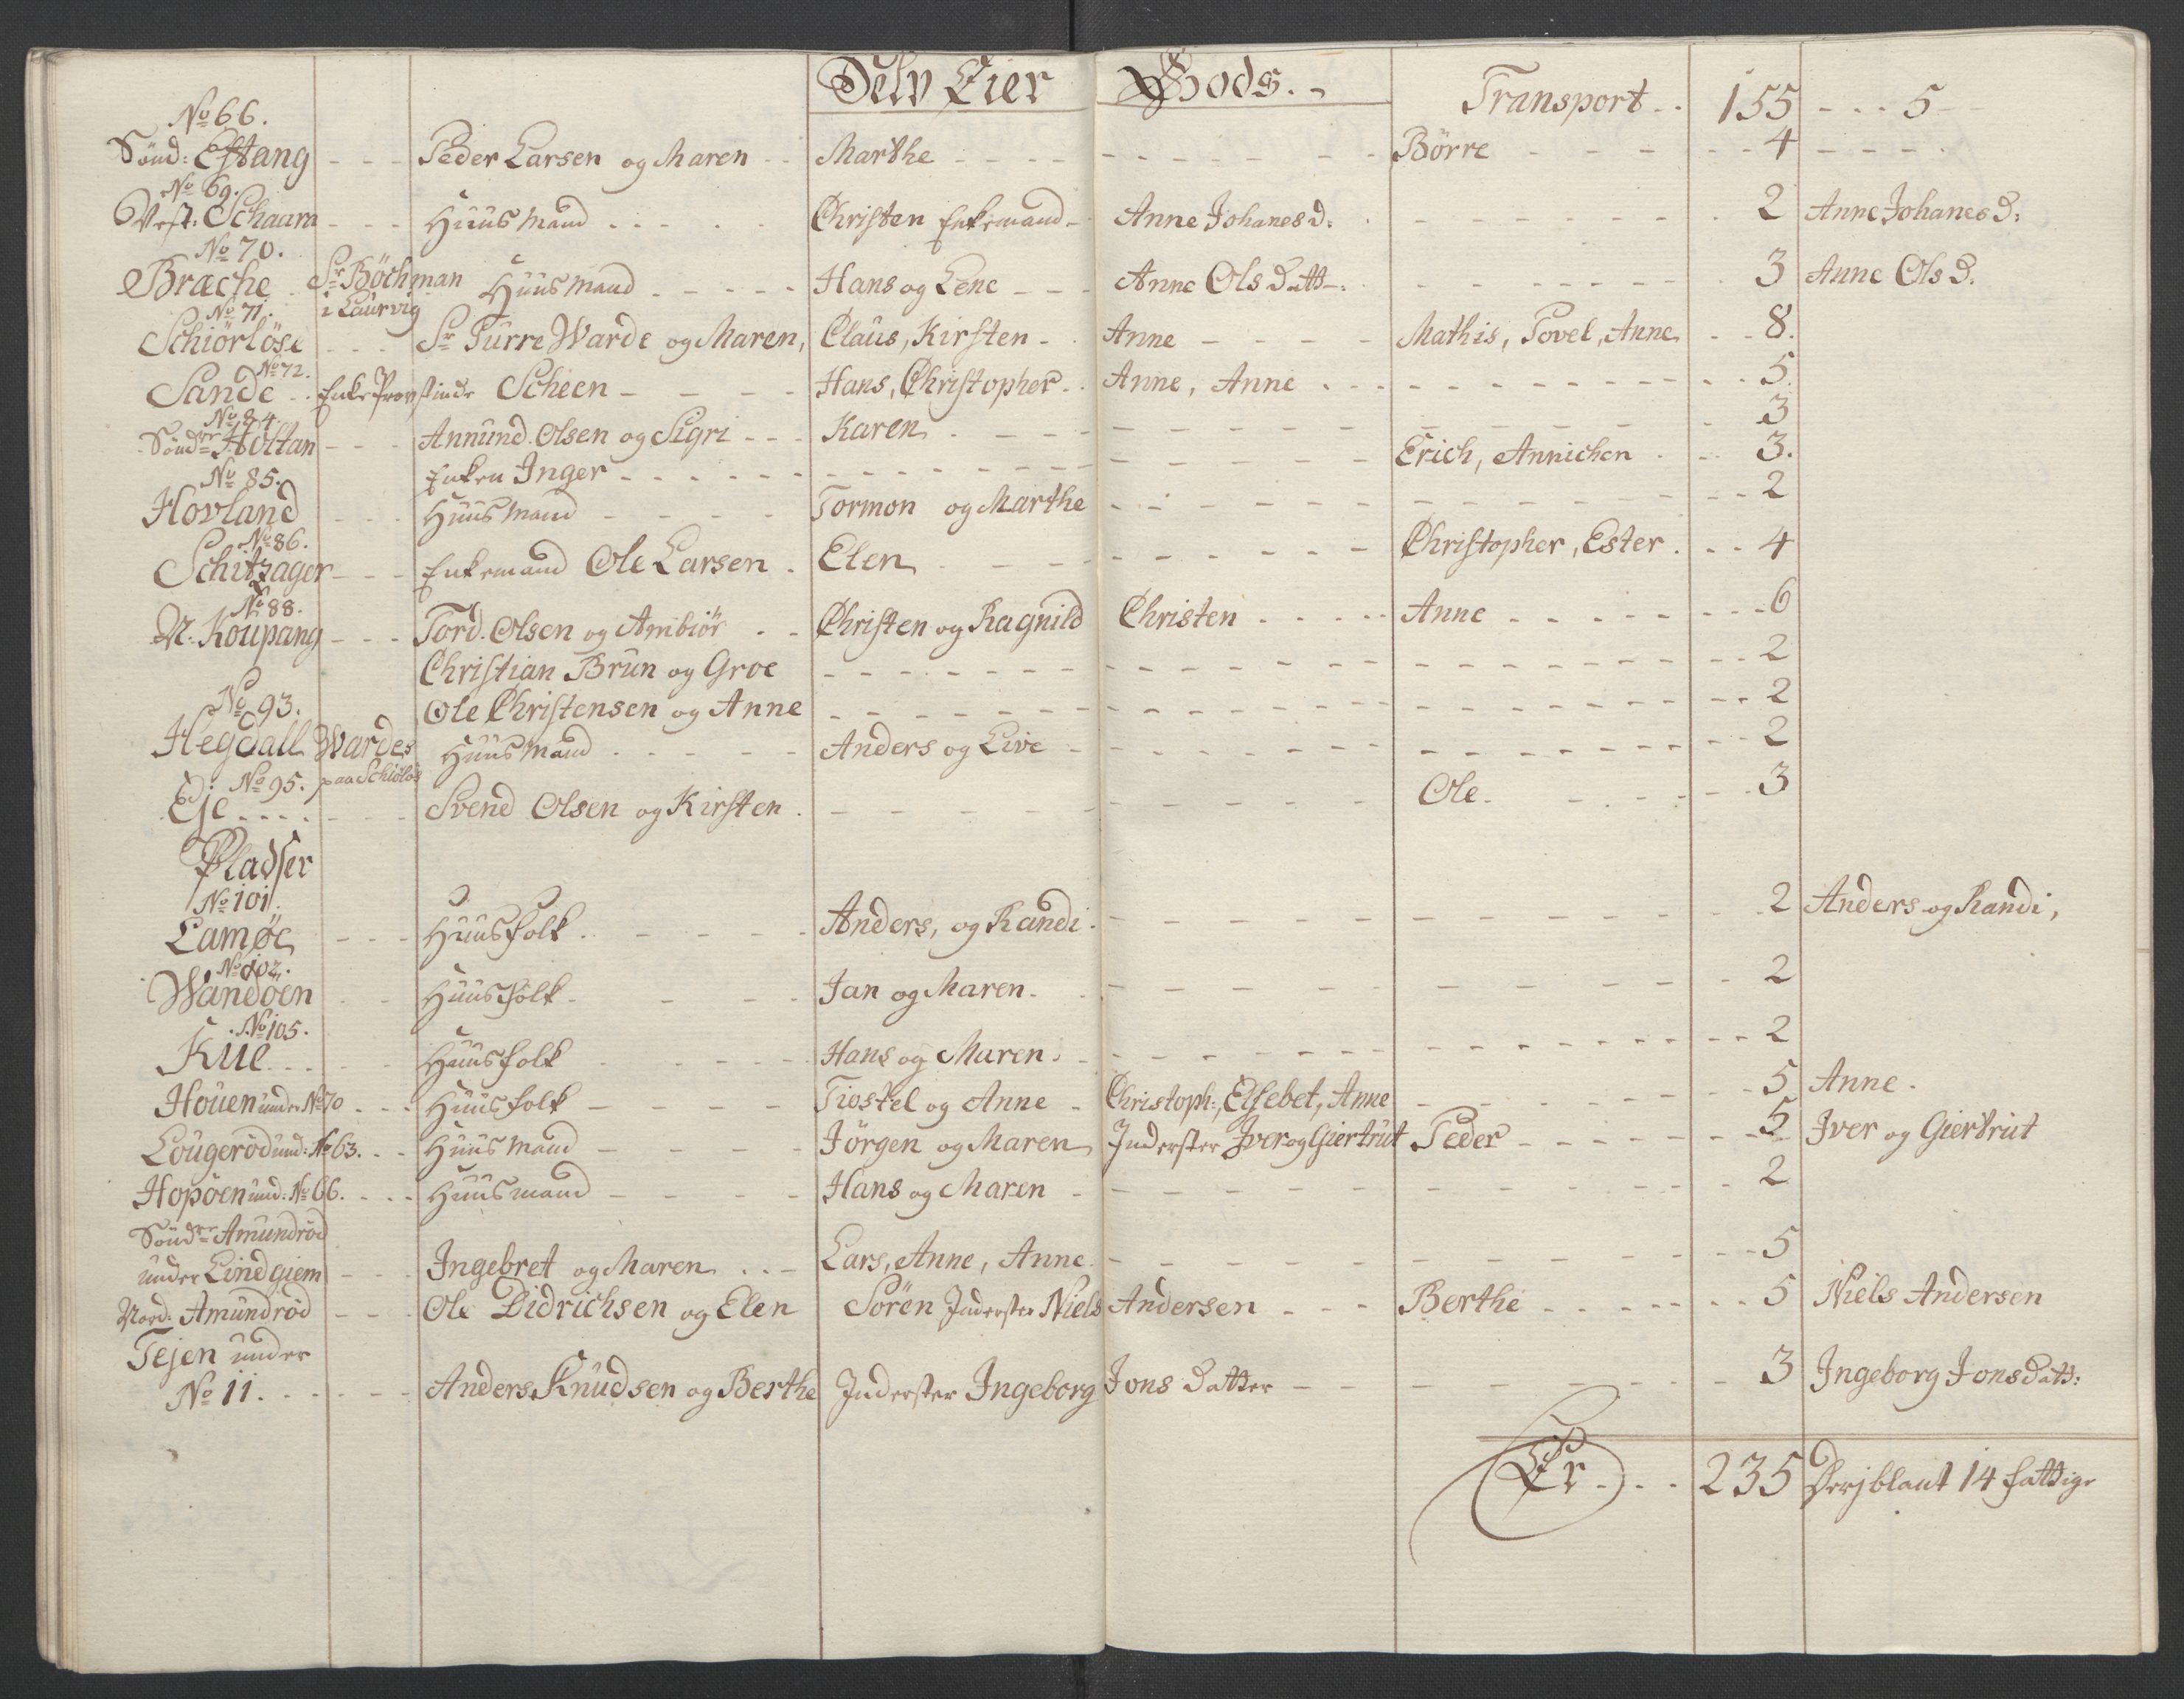 Selv Eier Gods.
Transport . . 155 - - - 5
No 66.
Sönd: Eftang - - - Peder Larsen og Maren - - Marthe - - - - Börre - - - - 4 - - - -
No 69.
Vest: Schaum - - - Huusmand - - - - Christen Enkemand - Anne Johanes D: - - - 2 Anne Johanes D:
No 70.
Bræche Sr Böchman i Laurvig Huusmand - - - - Hans og Lene - - - Anne Ols Datt: - - - 3 Anne Ols D.
No 71.
Schiörlöse - - - Sr Turre Warde og Maren, Claus, Kirsten - Anne - - - - Mathis, Povel, Anne - - 8.
No 72.
Sande - - Enke Provstinde Scheen - - - - Hans, Christopher - - Anne, Anne - - - 5.
No 84.
Sönder Holtan - - - Annund Olsen og Sigri - - - Karen - - - 3
Enken Inger - - - - - Erich, Annichen - - 3.
No 85.
Hovland - - - Huusmand - - - - Tormon og Marthe - - - 2
No 86.
Schitzager - - - Enkemand Ole Larsen - Elen - - - Christopher, Ester - - - 4
No 88.
N: Koupang - - - Tord Olsen og Ambiör - - Christen og Ragnild Christen - - - - Anne - - - - 6
Christian Brun og Groe - - - 2
Ole Christensen og Anne - - - 2
No 93.
Hegdall Wardes paa Schiölös Huusmand - - - - Anders og Live - - - 2
No 95.
Eje - - - - Svend Olsen og Kirsten - - - Ole - - - 3
Pladser
No 101.
Lamøe - - - Huusfolk - - - - Anders, og Randi - - - 2 Anders og Randi,
No 102.
Wandöen - - Huusfolk - - - - Jan og Maren - - - 2
No 105.
Kue - - - Huusfolk - - - - Hans og Maren - - - 2
Houen under No 70 - - - Huusfolk - - - - Tiostel og Anne - Christoph:, Elsebet, Anne - - - 5 Anne.
Lougeröd und: No 63. - - Huusmand - - - - Jörgen og Maren Inderster Iver og Giertrut Peder - - - 5 Iver og Giertrut
Hopöen und: No 66. - - - Huusmand - - - - Hans og Maren - - - 2
Sönder Amundröd
under Lindgiem - - - Ingebret og Maren - - - Lars, Anne, Anne - - - 5
Nord: Amundröd - - - Ole Didrichsen og Elen Sören Inderster Niels Andersen - - - Berthe - - - - 5 Niels Andersen
Tejen under
No 11. - - - - Anders Knudsen og Berthe Inderster Ingeborg Jons Datter - - - 3 Ingeborg Jons Datt:
Er - - - 235 Derjblant 14 fattige